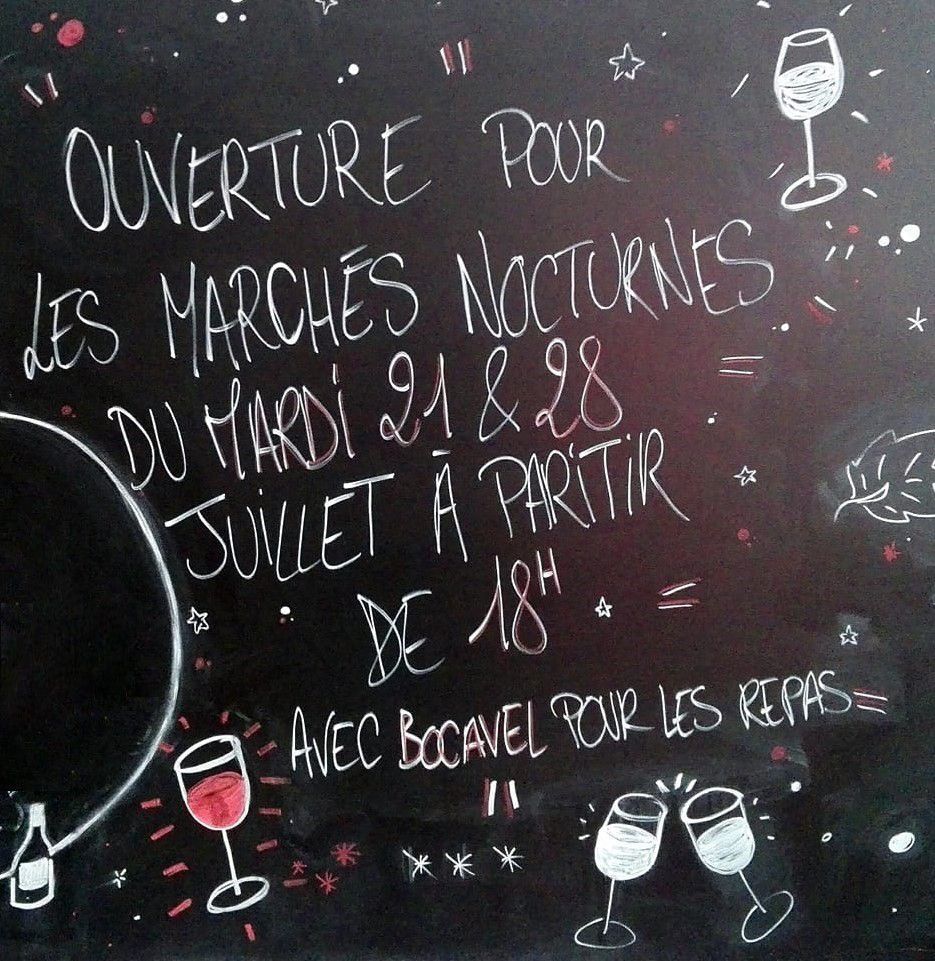 OUVERTURE POUR
LES MARCHÉS NOCTURNES
DU MARDI 21 & 28
JUILLET À PARITIR
DE 18H
AVEC BOCAVEL POUR LES REPAS